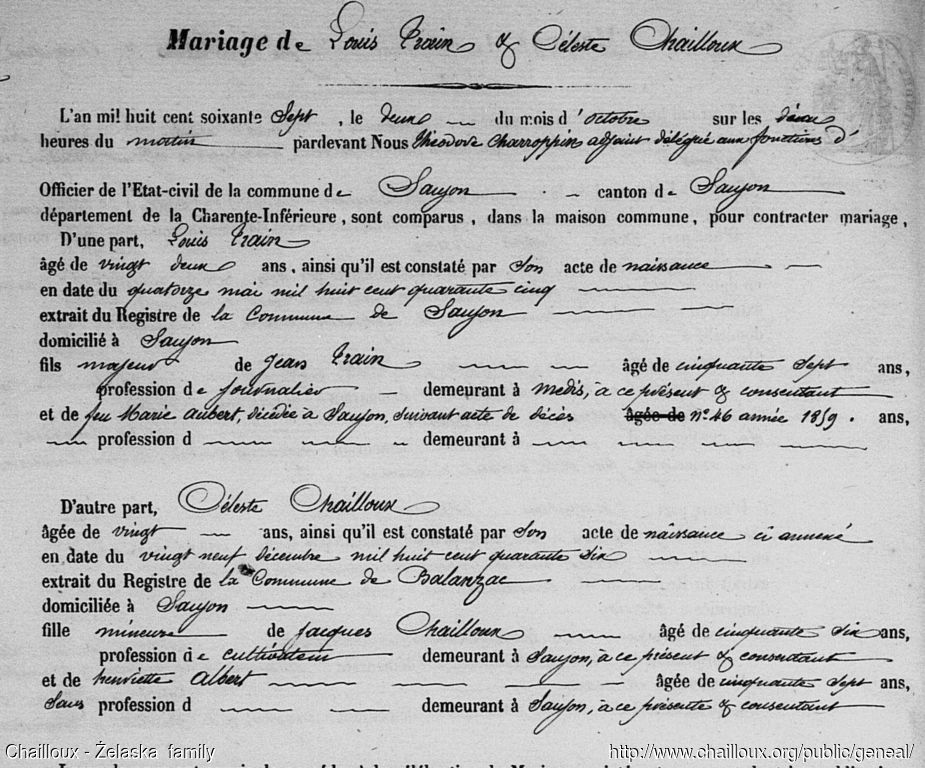 Mariage de Louis Train & Céleste Chailloux
L'an mil huit cent soixante Sept, le deux du mois d'octobre sur les
heures du matin pardevant Nous Théodore Charroppin adjoint délégué aux fonctions d'
Officier de l'Etat-civil de la commune de Saujon canton de Saujon
département de la Charente-Inférieure, sont comparus, dans la maison commune, pour contracter mariage,
D'une part, Louis Train
âgé de vingt deux ans, ainsi qu'il est constaté par Son acte de naissance
en date du quatorze mai mil huit cent quarante cinq
extrait du Registre de la Commune de Saujon
domicilié à Saujon
fils majeur de Jean Train âgé de cinquante Sept ans,
profession de journalier demeurant à Médis, à ce présent & consentant
et de feu Marie Aubert, décédée à Saujon, suivant acte de décès âgée de N° 46 année 1859. ans,
profession d demeurant à
D'autre part, Céleste Chailloux
âgée de vingt ans, ainsi qu'il est constaté par Son acte de naissance ci annexé
en date du vingt neuf décembre mil huit cent quarante Six
extrait du Registre de la Commune de Balanzac
domiciliée à Saujon
fille mineure de Jacques Chailloux âgé de cinquante six ans,
profession de cultivateur demeurant à Saujon, à ce présent & consentant
et de henriette Albert âgée de cinquante Sept ans,
Sans profession d demeurant à Saujon, à ce présente & consentant
Chailloux - Żelaska family http://www.chailloux.org/public/geneal/